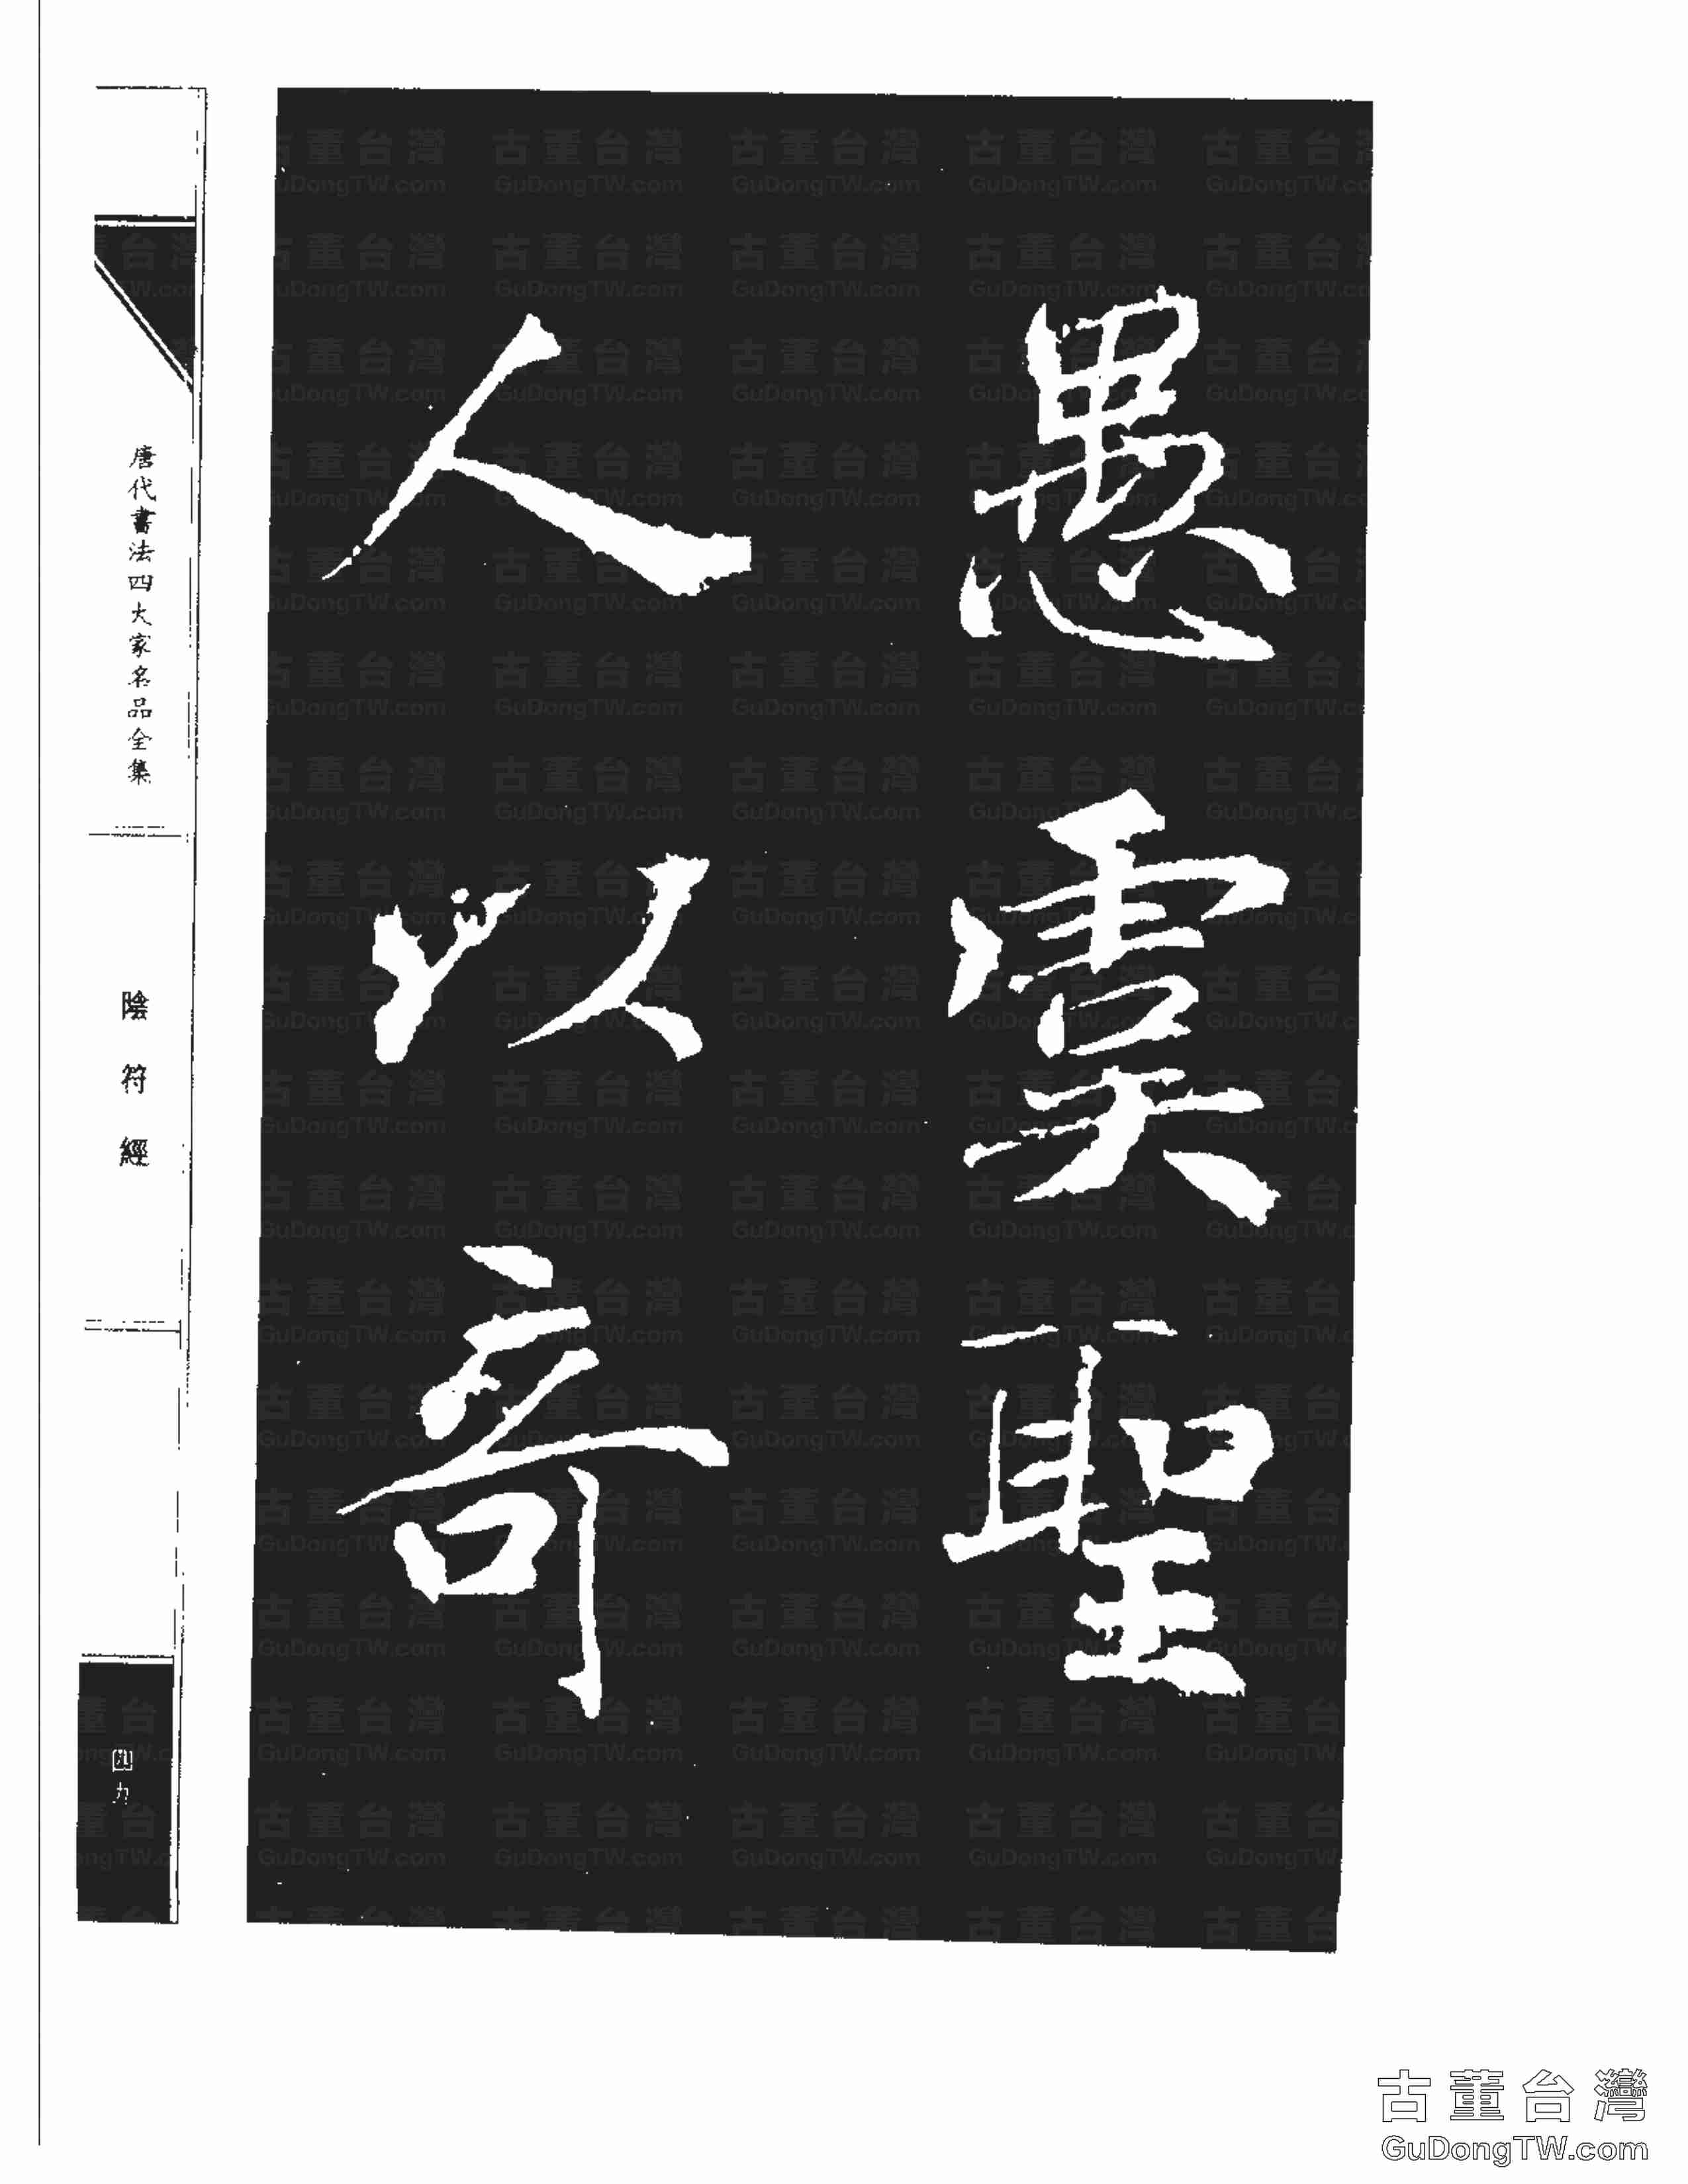 愚虞聖
人以奇
唐代書法四大家名品全集
陰符經
四九
古董台灣
GuDongTW.com